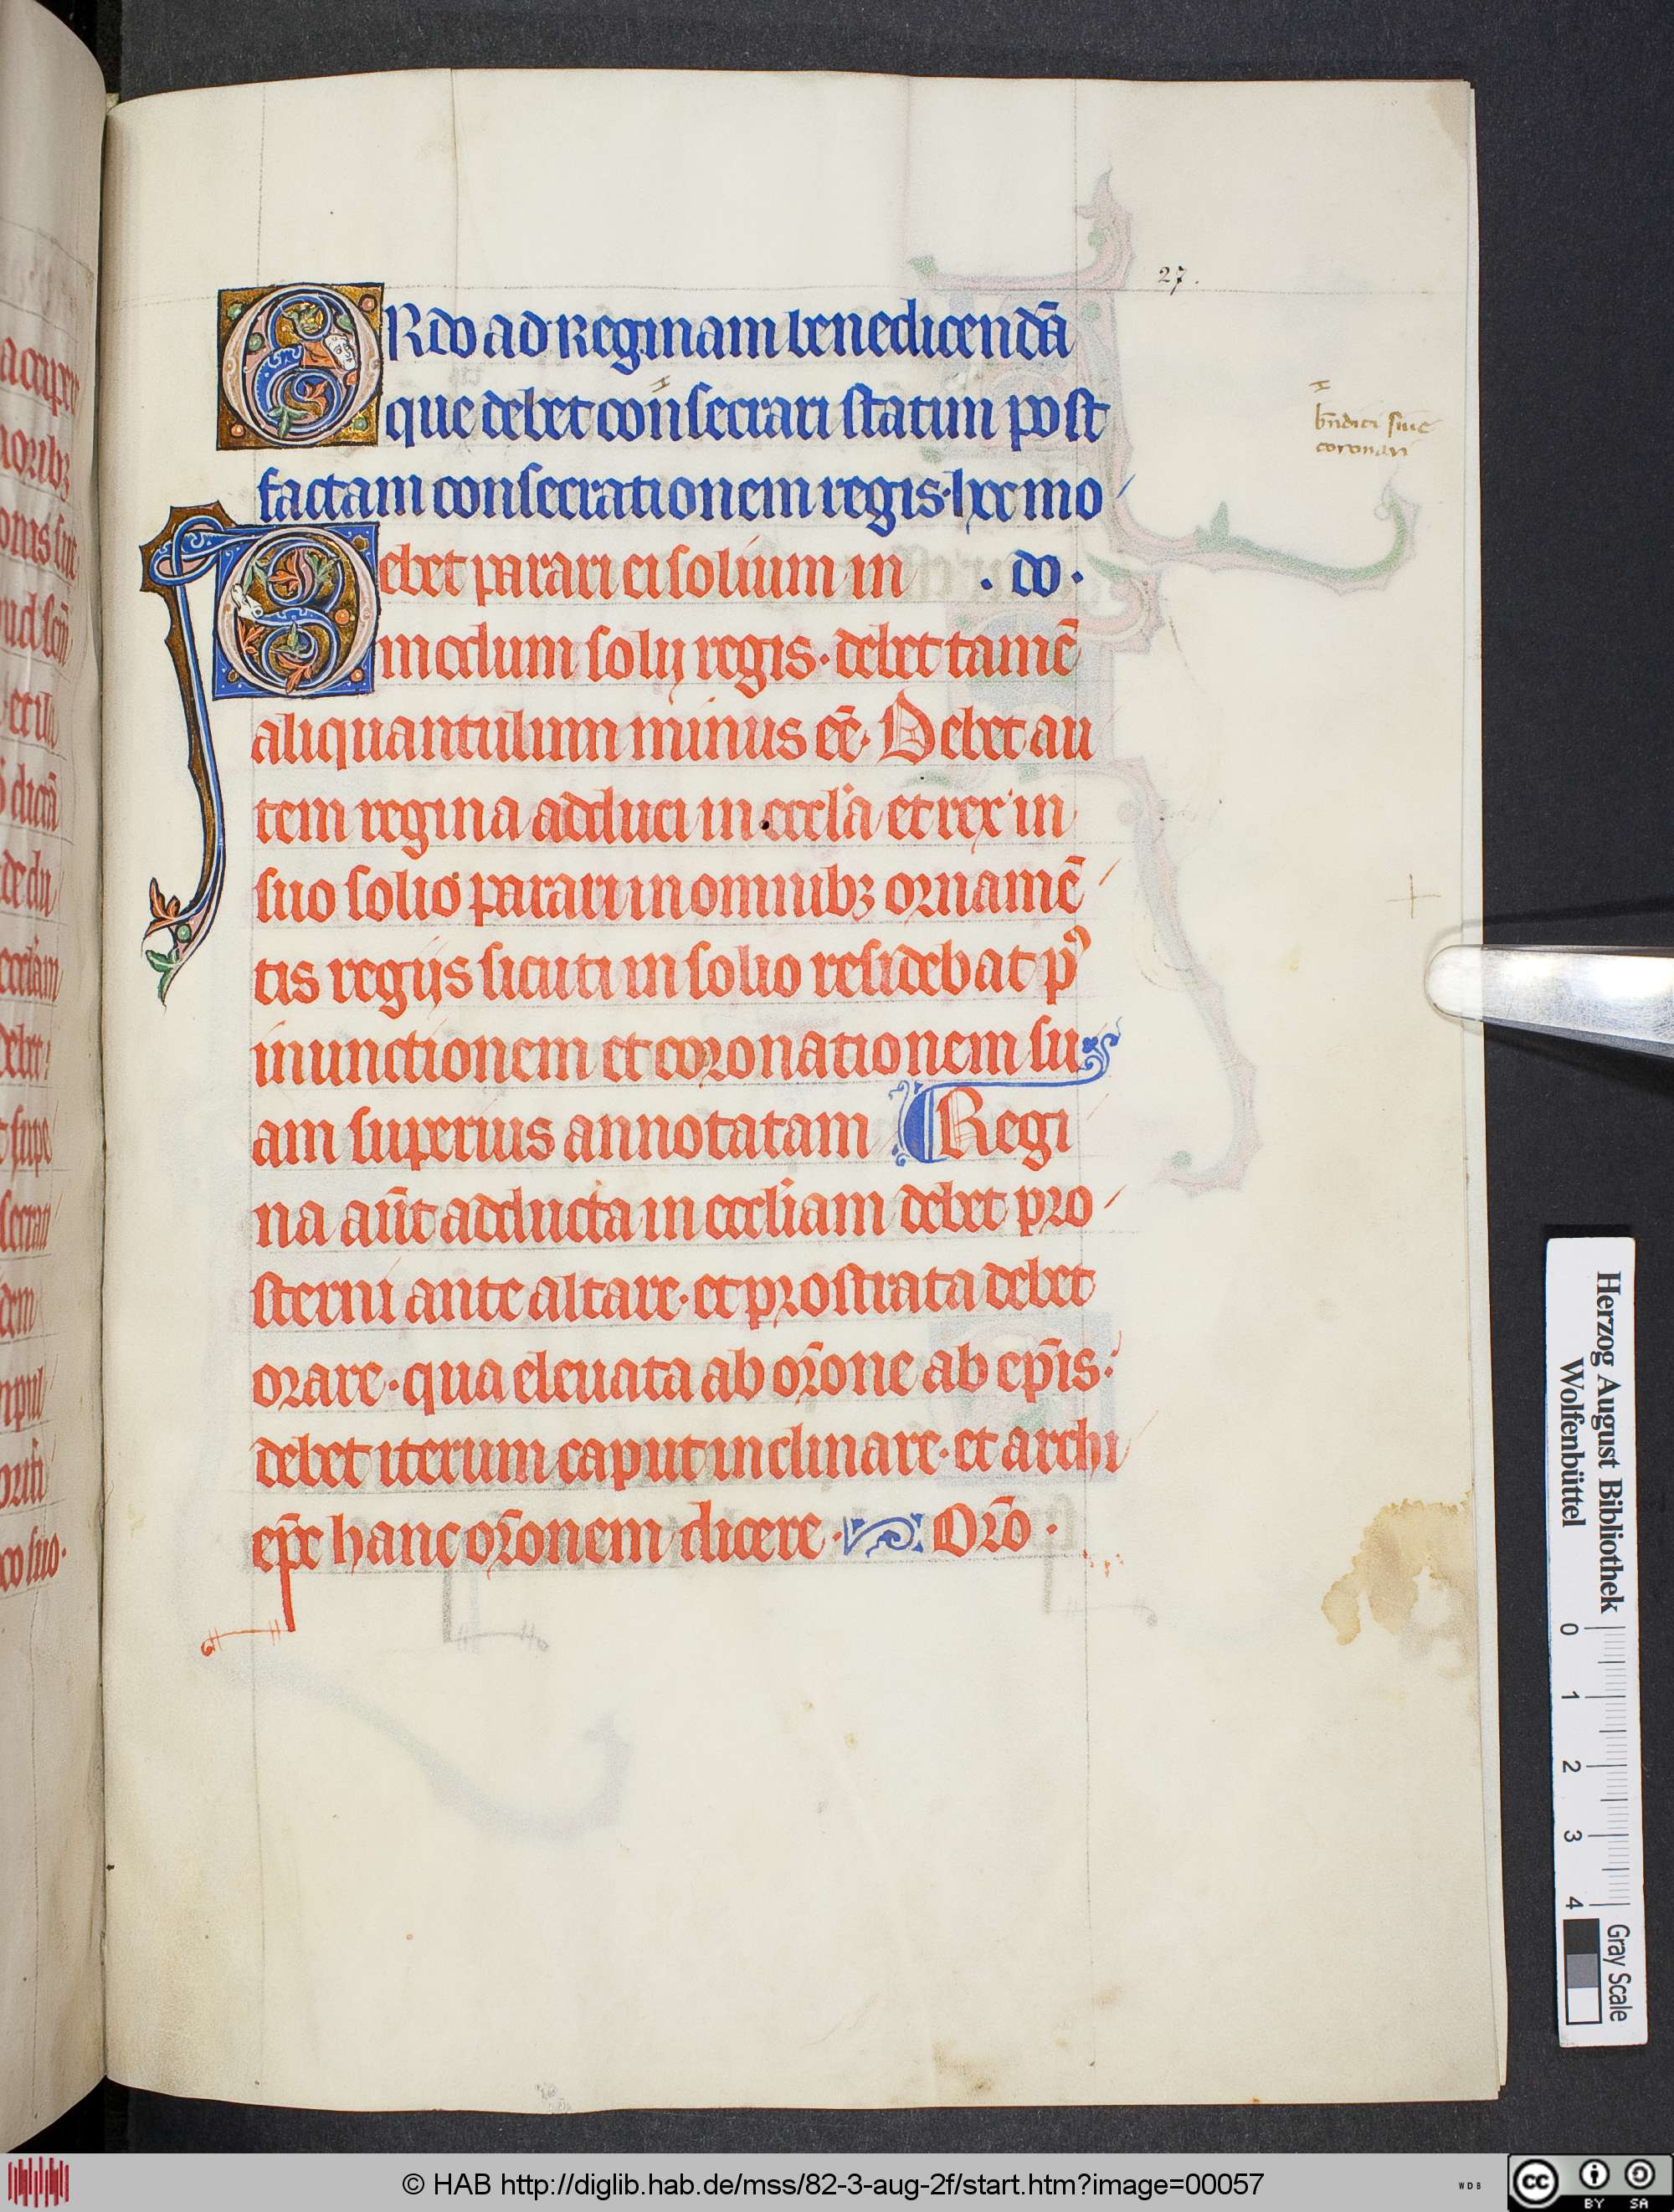 27.
ORdo ad Reginam benedicendā
que debet conſecrari ſtatim poſt
factam conſecrationem regis· hoc mo
· do ·
Debet parari ei ſolium in
modum ſolij regis· debet tamē
aliquantulum minus eē· Debet au
tem regina adduci in eccl'a et rex in
ſuo ſolio parari in omnibꝫ ornamē
tis regijs ſicuti in ſolio reſidebat pꝰ
inunctionem et coronationem ſu
am ſuperius annotatam ¶ Regi
na aūt adducta in eccl'iam debet pro
ſterni ante altare· et proſtrata debet
orare· qua eleuata ab or̄one ab ep̄is·
debet iterum caput inclinare· et archi
ep̄c hanc or̄onem dicere · Oro ·
bn̄dici ſiue
coronari
Herzog August Bibliothek
Wolfenbüttel
0 1 2 3 4
Gray Scale
© HAB http://diglib.hab.de/mss/82-3-aug-2f/start.htm?image=00057
WDB
cc
BY SA